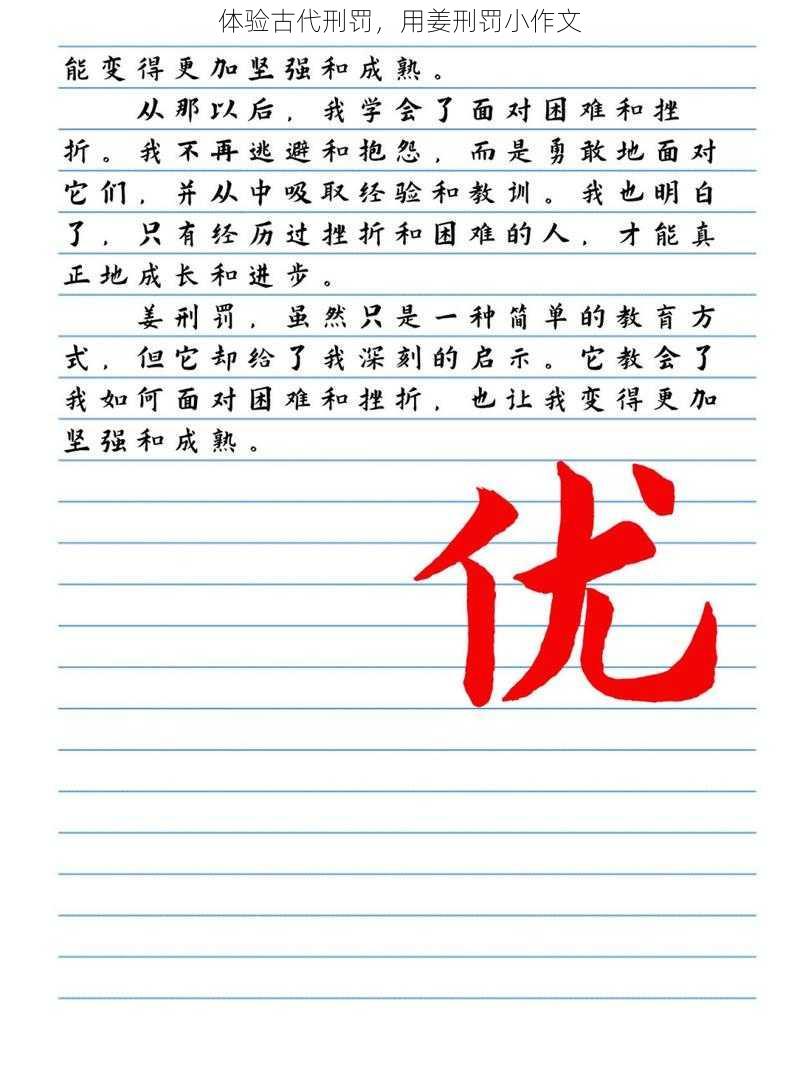 体验古代刑罚，用姜刑罚小作文
能变得更加坚强和成熟。
从那以后，我学会了面对困难和挫
折。我不再逃避和抱怨，而是勇敢地面对
它们，并从中吸取经验和教训。我也明白
了，只有经历过挫折和困难的人，才能真
正地成长和进步。
姜刑罚，虽然只是一种简单的教育方
式，但它却给了我深刻的启示。它教会了
我如何面对困难和挫折，也让我变得更加
坚强和成熟。
优